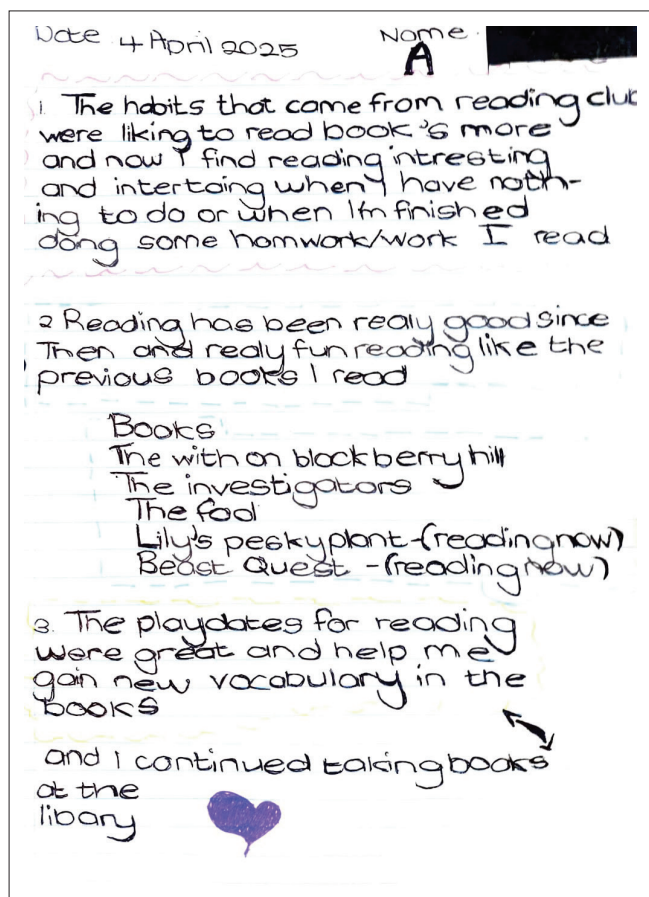 Date 4 April 2025 Name
A
1. The habits that came from reading club
were liking to read book's more
and now I find reading intresting
and intertaing when I have noth-
ing to do or when I'm finished
doing some homwork/work I read
2 Reading has been realy good since
Then and realy fun reading like the
previous books I read
Books
The with on blackberry hill
The investigators
The fool
Lily's pesky plant - (reading now)
Beast Quest - (reading now)
3. The playdates for reading
were great and help me
gain new vocabulary in the
books
and I continued taking books
at the
libary